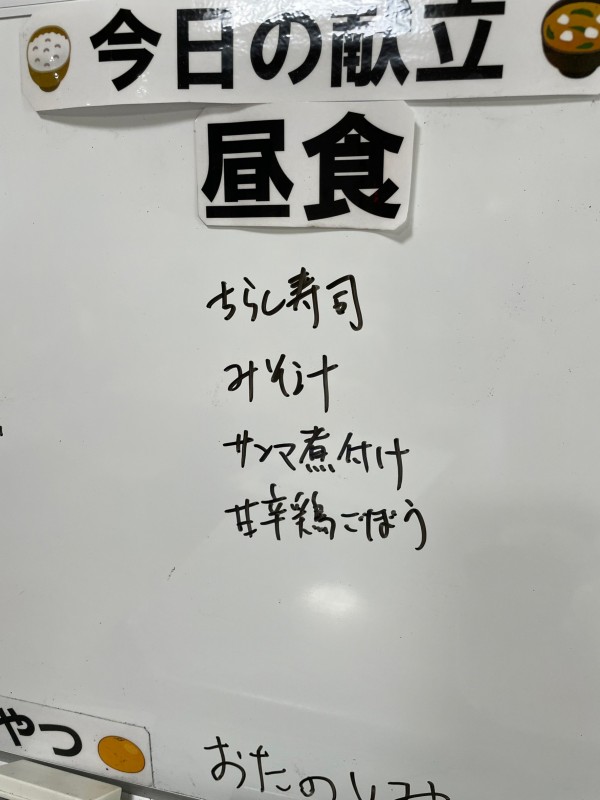 今日の献立
昼食
ちらし寿司
みそ汁
サンマ煮付け
甘辛鶏ごぼう
やつ
おたのしみ